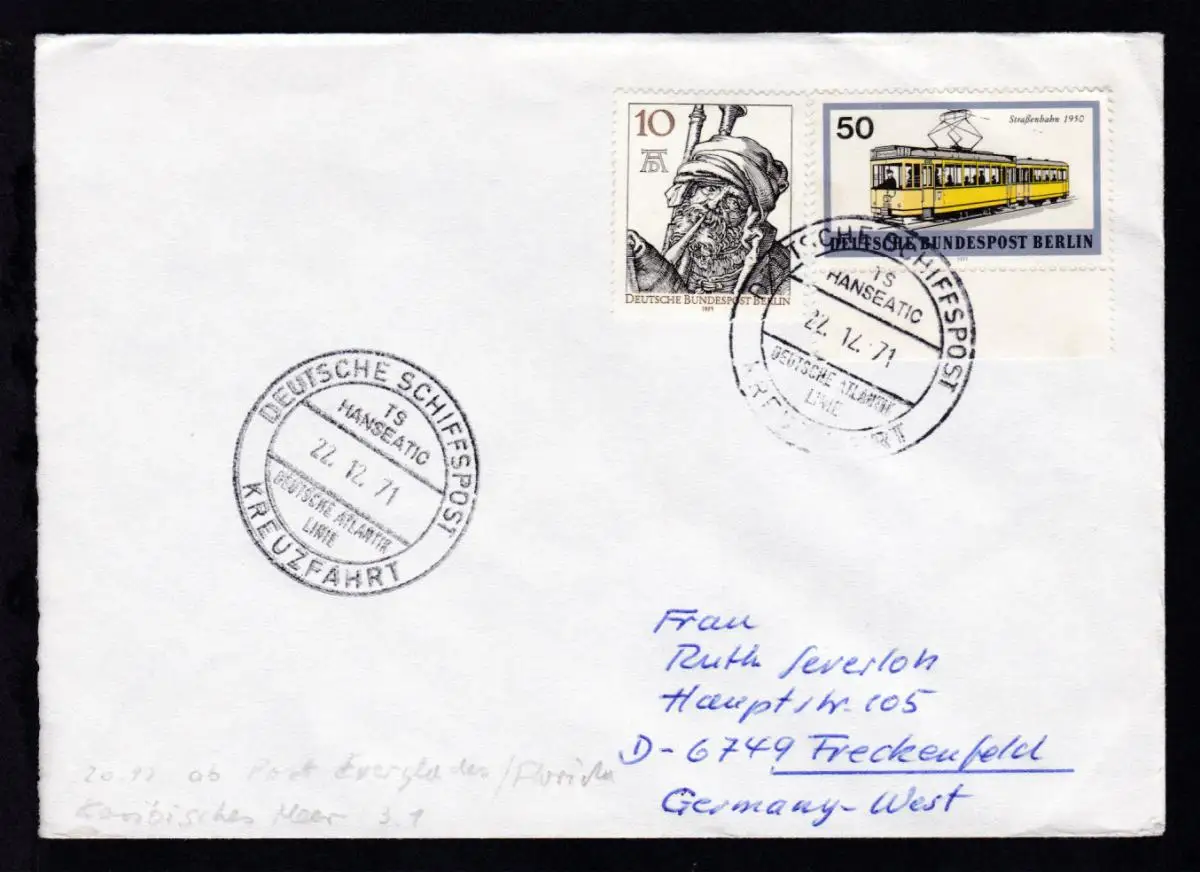 10
DEUTSCHE BUNDESPOST BERLIN
1971
50
Straßenbahn 1950
DEUTSCHE BUNDESPOST BERLIN
1971
DEUTSCHE SCHIFFSPOST
TS
HANSEATIC
22.12.71
DEUTSCHE ATLANTIK
LINIE
KREUZFAHRT
DEUTSCHE SCHIFFSPOST
TS
HANSEATIC
22.12.71
DEUTSCHE ATLANTIK
LINIE
KREUZFAHRT
Frau
Ruth Severloh
Hauptstr. 105
D-6749 Freckenfeld
Germany-West
20.12 ab Port Everglades/Florida
Karibisches Meer 3.1